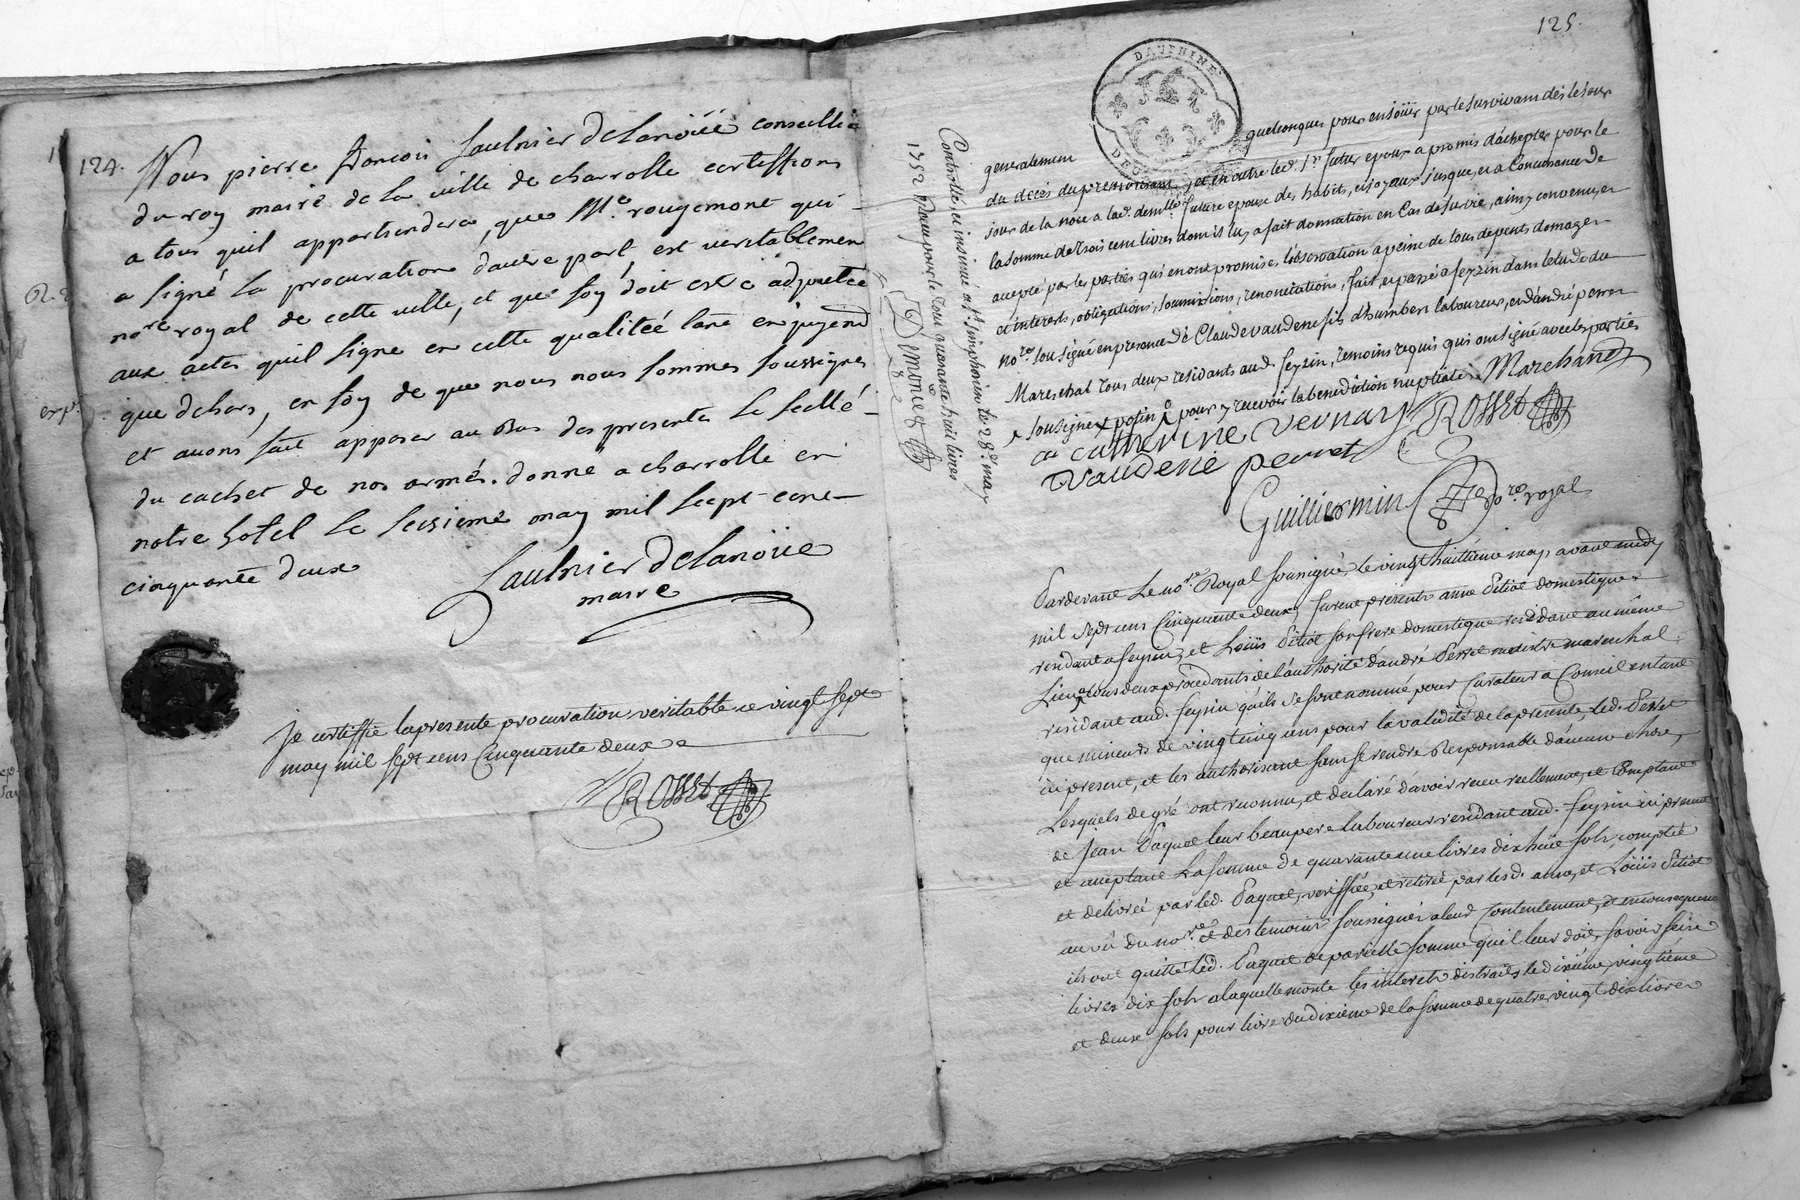 124.
Nous pierre francois Saulnier Delanoüe conseillie
du roy maire de la ville de charrolle certiffions
a tous quil appartiendera, que Me. rougemont qui
a signé la procuration d'autre part, est veritablemen
nore royal de cette ville, et que foy doit estre adjoutée
aux actes quil signe en cette qualiteé tant en jugend
que dehors, en foy de que nous nous sommes soussignes
et avons fait apposer au bas des presente le scellé
du cachet de nos armés. donné a charrolle en
notre hotel le seisieme may mil sept cent
cinquante deux
Saulnier Delanoüe
maire
je certiffie la presente procuration veritable ce vingt sept
may mil sept cens Cinquante deux
ROSSET
125.
DAUPHINE
generalement quelconques pour en joüir par le survivant dés le jour
du decés du premourant, et en outre led. sr. futur epoux a promis d'achepter pour le
jour de la noce a lad. demlle. future epouse des habits, et joyaux jusques a Concurrance de
la somme de trois cent livres dont il luy a fait donnation en Cas de survie, ainsy convenu, et
accepté par les parties qui en ont promis l'observation a peine de tous depents domages
et interests, obligations, soumissions, renonciations, fait, et passé a feyzin dans l'etude du
nore. sousigné en presence de Claude vaudene fils d'humbert laboureur, et d'andré perret
Mareschal tous deux residants aud. feyzin, temoins requis qui ont signé avec les parties
sousigné pour y recevoir la benediction nuptiale
Marchand
catherine vernay ROSSET
vaudene perret
Guilliermin nore. royal
Controllé, et insinué a St. simphorien le 28e. may
1752
Pardevant Le nore. Royal soussigné, le vingt huitieme may avant midy
mil sept cens Cinquante deux, furent presents anne Pitiot domestique
residant a feyzin, et Loüis Pitiot son frere domestique residant au même
Lieu, tous deux procedants de l'authorité d'andré Perret maistre marechal
residant aud. feyzin qu'ils se sont nommé pour Curateur a Conseil entant
que mineurs de vingt cinq ans pour la validité de la presente, led. Perret
ici present, et les authorisant sans se rendre Responsable d'aucune chose,
Lesquels de gré ont reconnu, et declaré d'avoir receu reellement, et Comptant
de Jean Paquet leur beaupere laboureur residant aud. feyzin ici present
et acceptant La somme de quarante une livres dix huit sols, comptée
et delivrée par led. Paquet, veriffiée, et retirée par lesd. anne, et Loüis Pitiot
au vû du nore. et des temoins soussignés a leur Contentement, et en consequence
ils ont quitté led. Paquet de pareille somme qu'il leur doit, savoir seize
livres dix sols a laquelle monte les interets distraits le dixieme, vingtieme
et deux sols pour livre du dixieme de la somme de quatre vingt dix livres